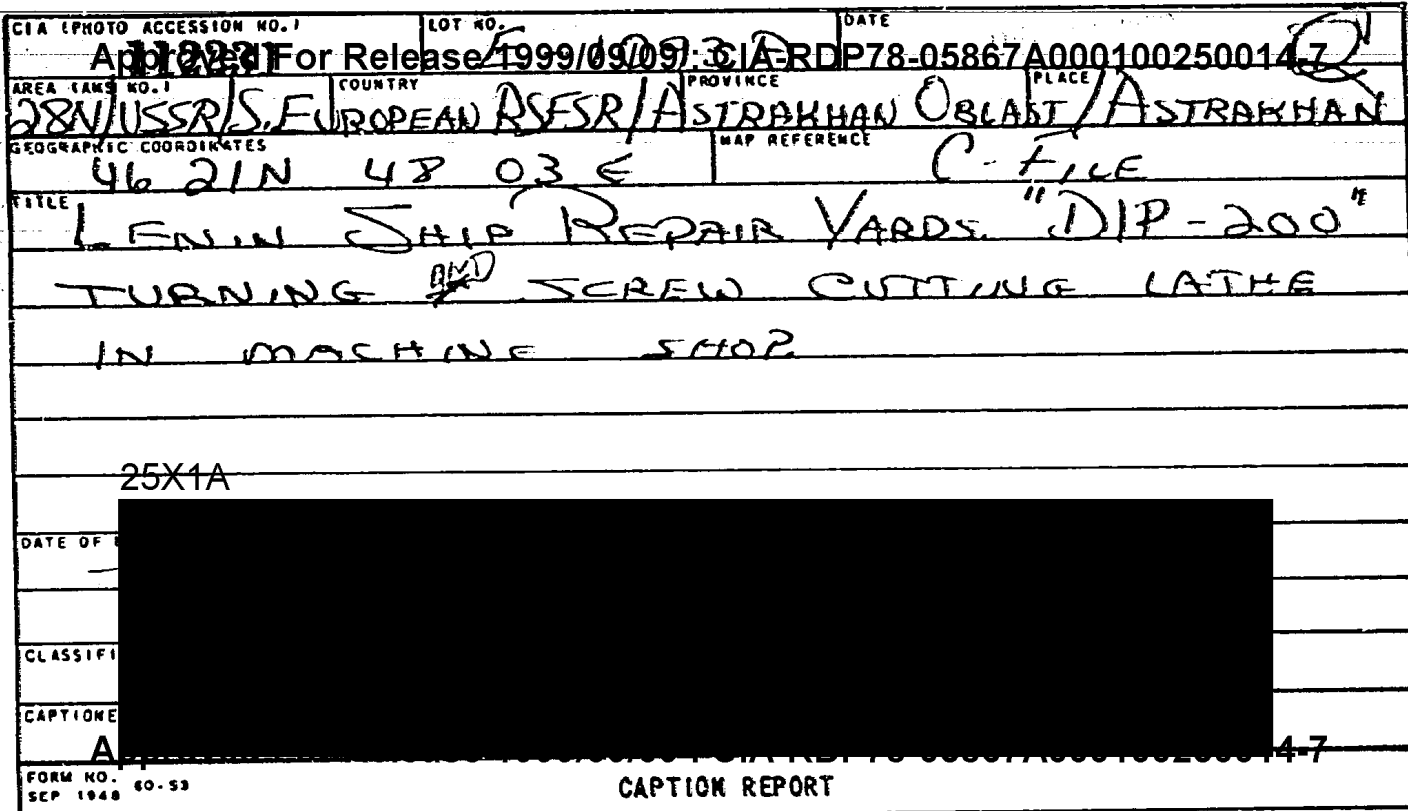 CIA (PHOTO ACCESSION NO.) LOT NO. DATE
Approved For Release 1999/09/09 : CIA-RDP78-05867A000100250014-7
AREA (AMS NO.) COUNTRY PROVINCE PLACE
28N/USSR/S. EUROPEAN RSFSR/ASTRAKHAN OBLAST/ASTRAKHAN
GEOGRAPHIC COORDINATES MAP REFERENCE
46 21N 48 03 E C-FILE
TITLE
LENIN SHIP REPAIR YARDS. "DIP-200"
TURNING AND SCREW CUTTING LATHE
IN MACHINE SHOP
25X1A
DATE OF
CLASSIFI
CAPTIONE
FORM NO. 60-53
SEP 1948
CAPTION REPORT